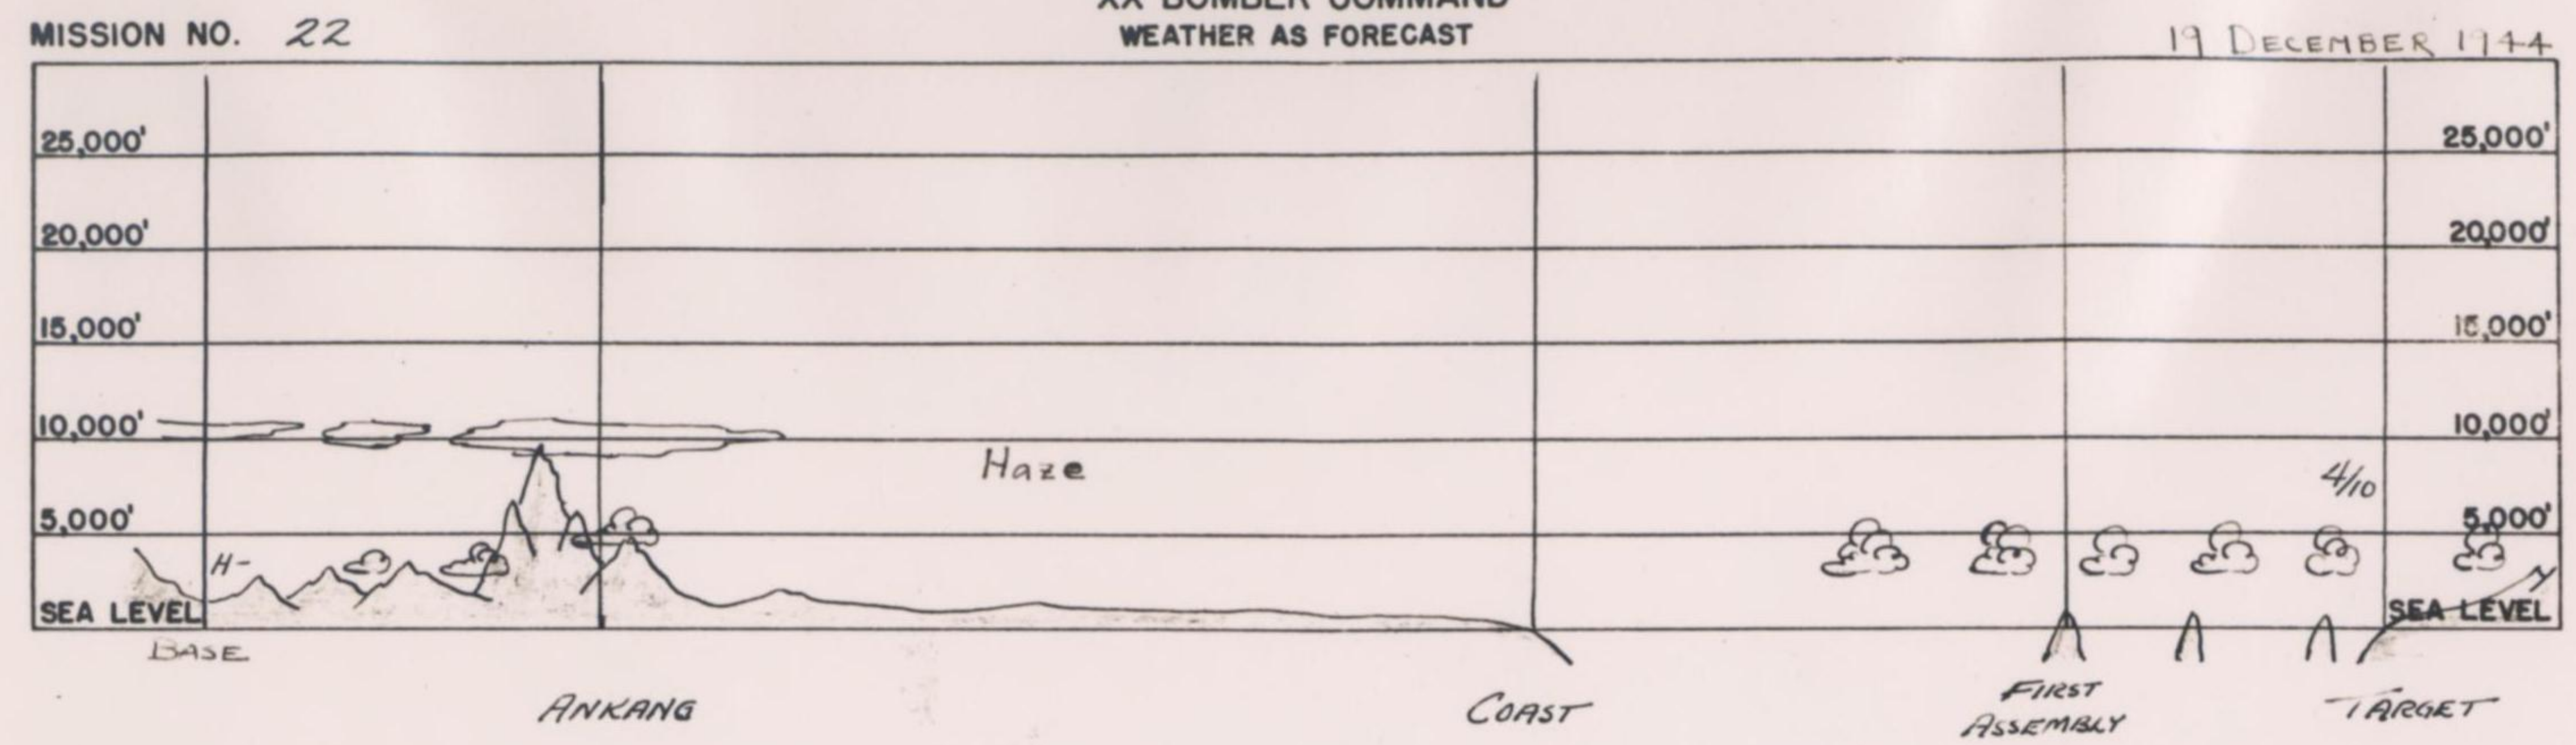 XX BOMBER COMMAND
MISSION NO. 22
WEATHER AS FORECAST
19 DECEMBER 1944
25,000' 25,000'
20,000' 20,000'
15,000' 15,000'
10,000' 10,000'
Haze
4/10
5,000' 5,000'
H-
SEA LEVEL SEA LEVEL
BASE
ANKANG
COAST
FIRST
ASSEMBLY
TARGET